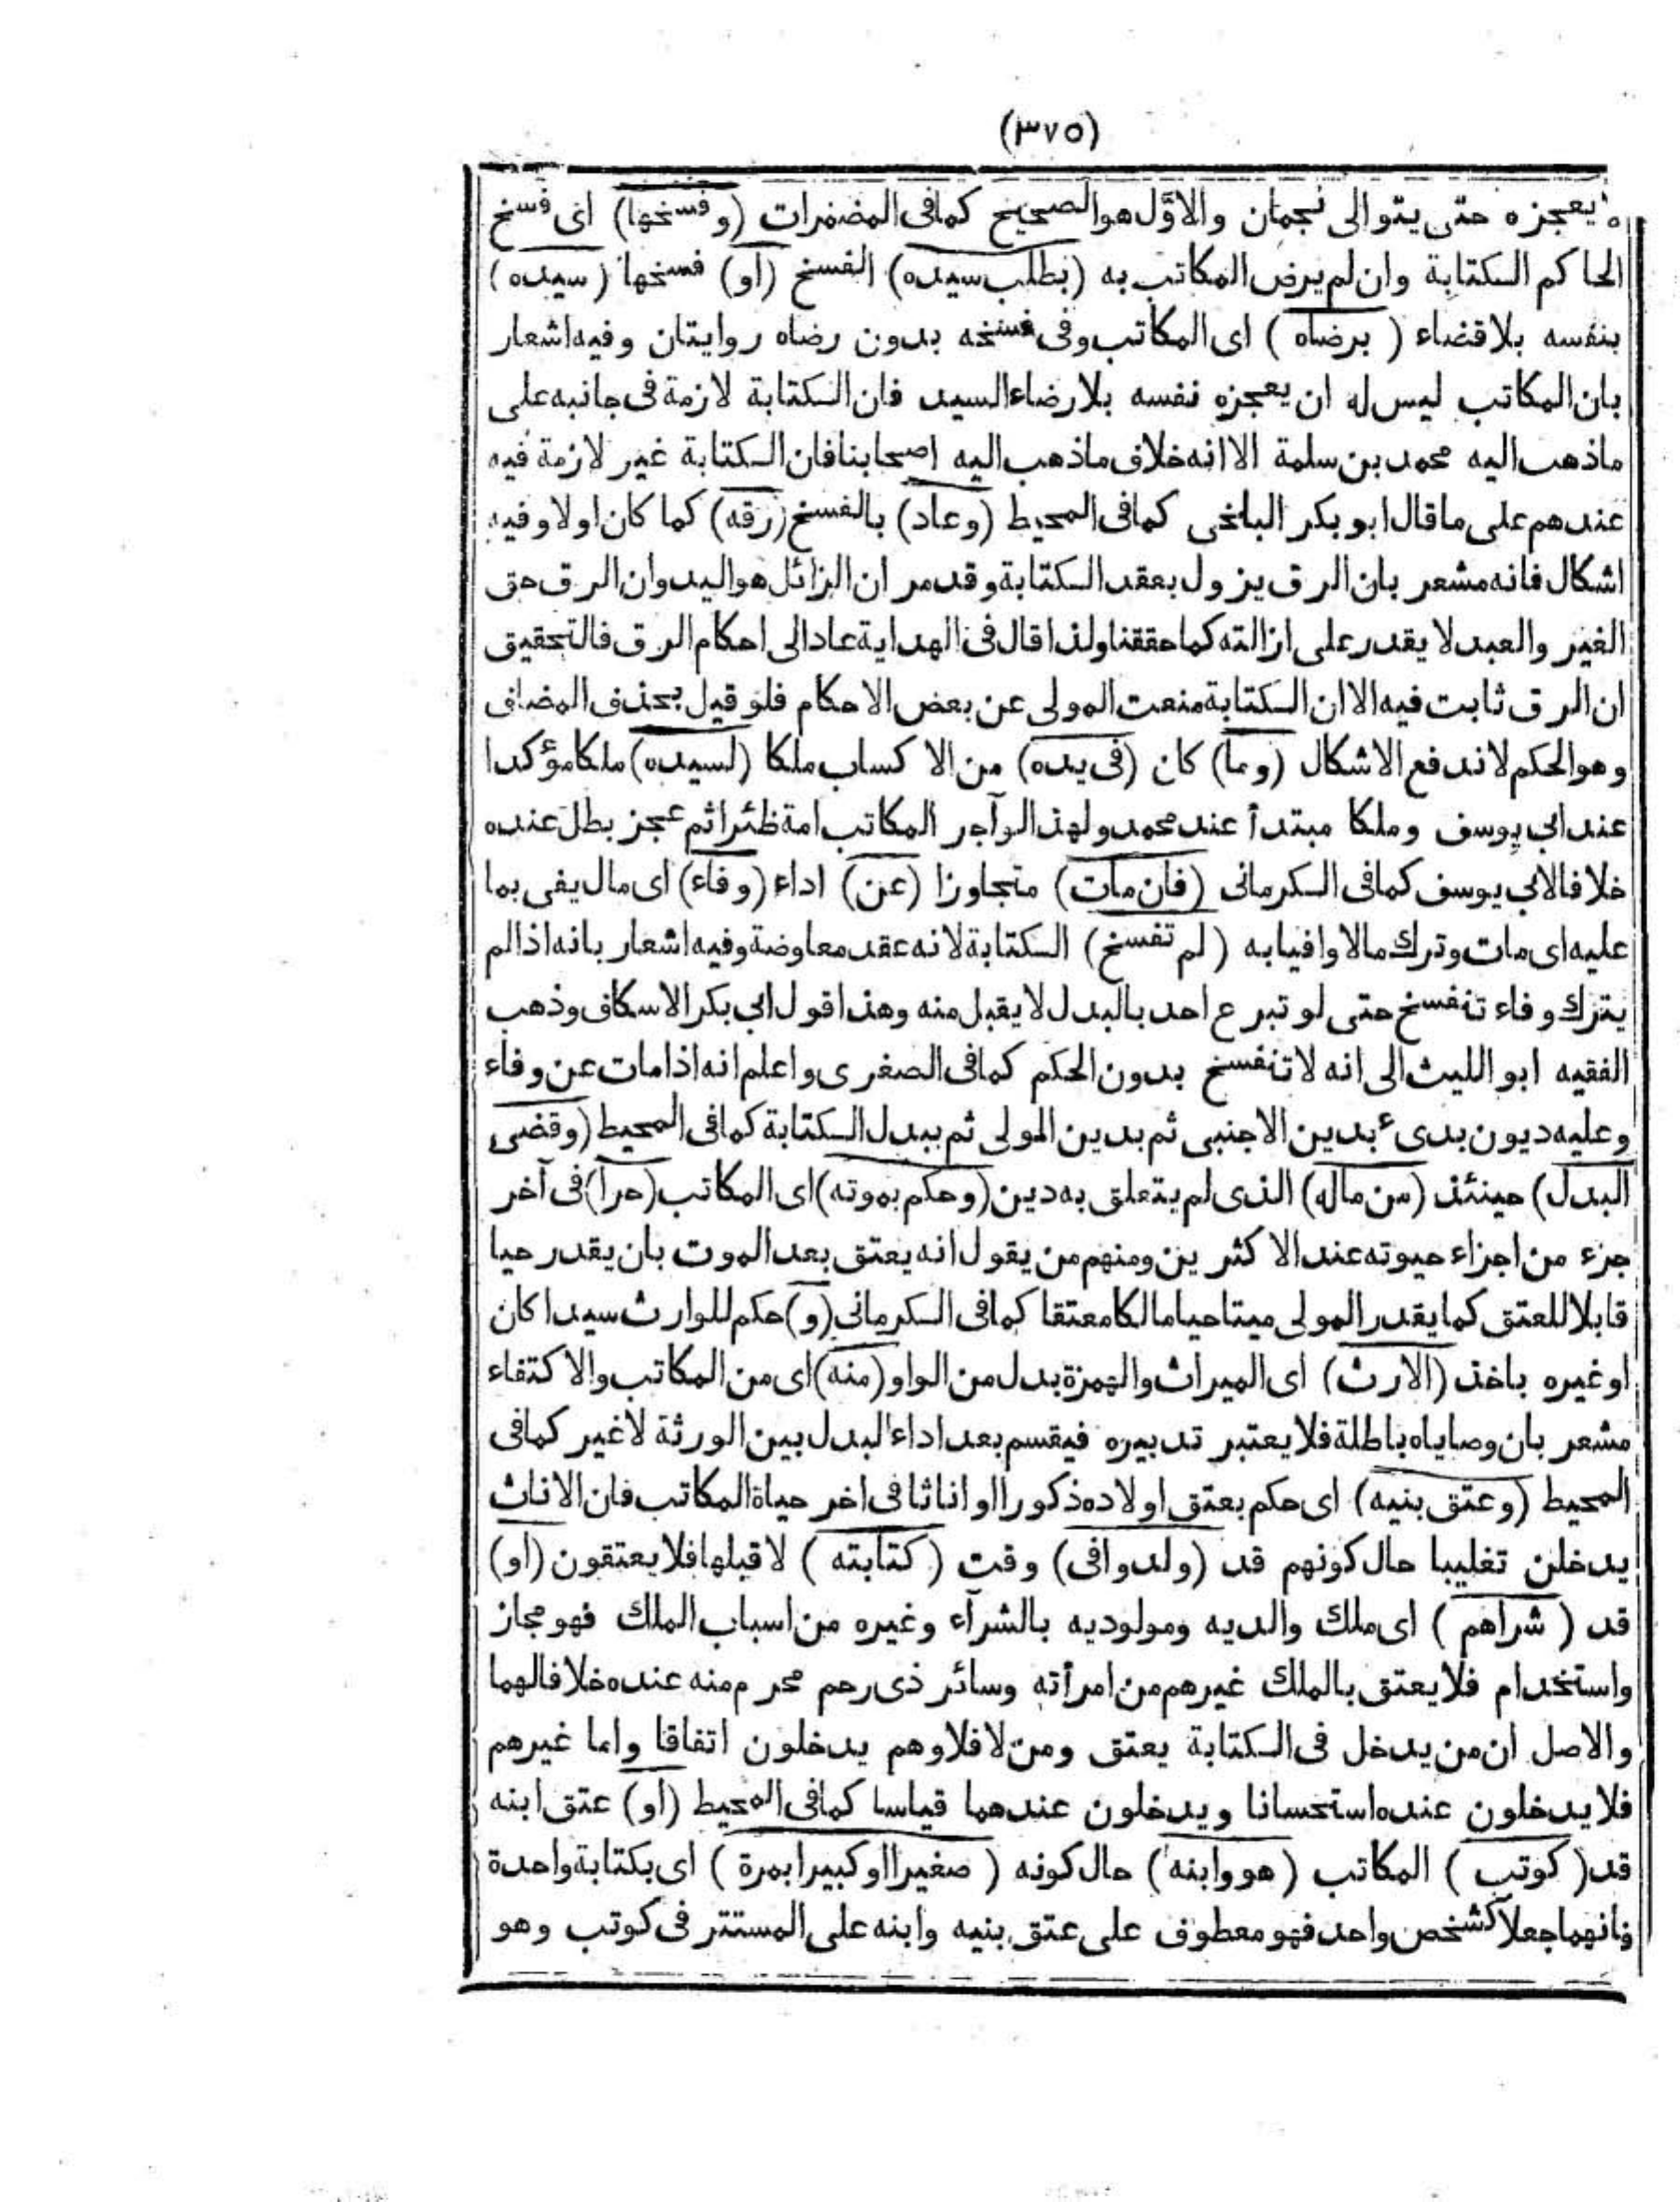 (٣٧٥)
يعجزه حتى يتوالى نجمان والاوّل هو الصحيح كما فى المضمرات (وفسخها) اى فسخ
الحاكم الكتابة وان لم يرض المكاتب به (بطلب سيده) الفسخ (او) فسخها (سيده)
بنفسه بلا قضاء (برضاه) اى المكاتب وفى فسخه بدون رضاه روايتان وفيه اشعار
بان المكاتب ليس له ان يعجزه نفسه بلا رضاء السيد فان الكتابة لازمة فى جانبه على
ماذهب اليه محمد بن سلمة الا انه خلاف ماذهب اليه اصحابنا فان الكتابة غير لازمة فيه
عندهم على ما قال ابو بكر البلخى كما فى المحيط (وعاد) بالفسخ (رقه) كما كان اولا وفيه
اشكال فانه مشعر بان الرق يزول بعقد الكتابة وقد مر ان الزائل هو اليد وان الرق حق
الغير والعبد لا يقدر على ازالته كما حققنا ولذا قال فى الهداية عاد الى احكام الرق فالتحقيق
ان الرق ثابت فيه الا ان الكتابة منعت المولى عن بعض الاحكام فلو قيل بحذف المضاف
وهو الحكم لاندفع الاشكال (وما) كان (فى يده) من الاكساب ملكا (لسيده) ملكا مؤكدا
عند ابى يوسف وملكا مبتدأ عند محمد ولهذا لو آجر المكاتب امة ظئرا ثم عجز بطل عنده
خلافا لابى يوسف كما فى الكرمانى (فان مات) متجاوزا (عن) اداء (وفاء) اى مال يفى بما
عليه اى مات وترك مالا وافيا به (لم تفسخ) الكتابة لانه عقد معاوضة وفيه اشعار بانه اذا لم
يترك وفاء تنفسخ حتى لو تبرع احد بالبدل لا يقبل منه وهذا قول ابى بكر الاسكاف وذهب
الفقيه ابو الليث الى انه لا تنفسخ بدون الحكم كما فى الصغرى واعلم انه اذا مات عن وفاء
وعليه ديون بدىء بدين الاجنبى ثم بدين المولى ثم ببدل الكتابة كما فى المحيط (وقضى
البدل) حينئذ (من ماله) الذى لم يتعلق به دين (وحكم بموته) اى المكاتب (حرا) فى آخر
جزء من اجزاء حيوته عند الاكثرين ومنهم من يقول انه يعتق بعد الموت بان يقدر حيا
قابلا للعتق كما يقدر المولى ميتا حيا مالكا معتقا كما فى الكرمانى (و) حكم للوارث سيدا كان
او غيره باخذ (الارث) اى الميراث والهمزة بدل من الواو (منه) اى من المكاتب والاكتفاء
مشعر بان وصاياه باطلة فلا يعتبر تدبيره فيقسم بعد اداء البدل بين الورثة لا غير كما فى
المحيط (وعتق بنيه) اى حكم بعتق اولاده ذكورا او اناثا فى اخر حياة المكاتب فان الاناث
يدخلن تغليبا حال كونهم قد (ولدوا فى) وقت (كتابته) لا قبلها فلا يعتقون (او)
قد (شراهم) اى ملك والديه ومولوديه بالشرآء وغيره من اسباب الملك فهو مجاز
واستخدام فلا يعتق بالملك غيرهم من امرأته وسائر ذى رحم محرم منه عنده خلافا لهما
والاصل ان من يدخل فى الكتابة يعتق ومن لا فلا وهم يدخلون اتفاقا واما غيرهم
فلا يدخلون عنده استحسانا ويدخلون عندهما قياسا كما فى المحيط (او) عتق ابنه
قد (كوتب) المكاتب (هو وابنه) حال كونه (صغيرا او كبيرا بمرة) اى بكتابة واحدة
فانهما جعلا كشخص واحد فهو معطوف على عتق بنيه وابنه على المستتر فى كوتب وهو